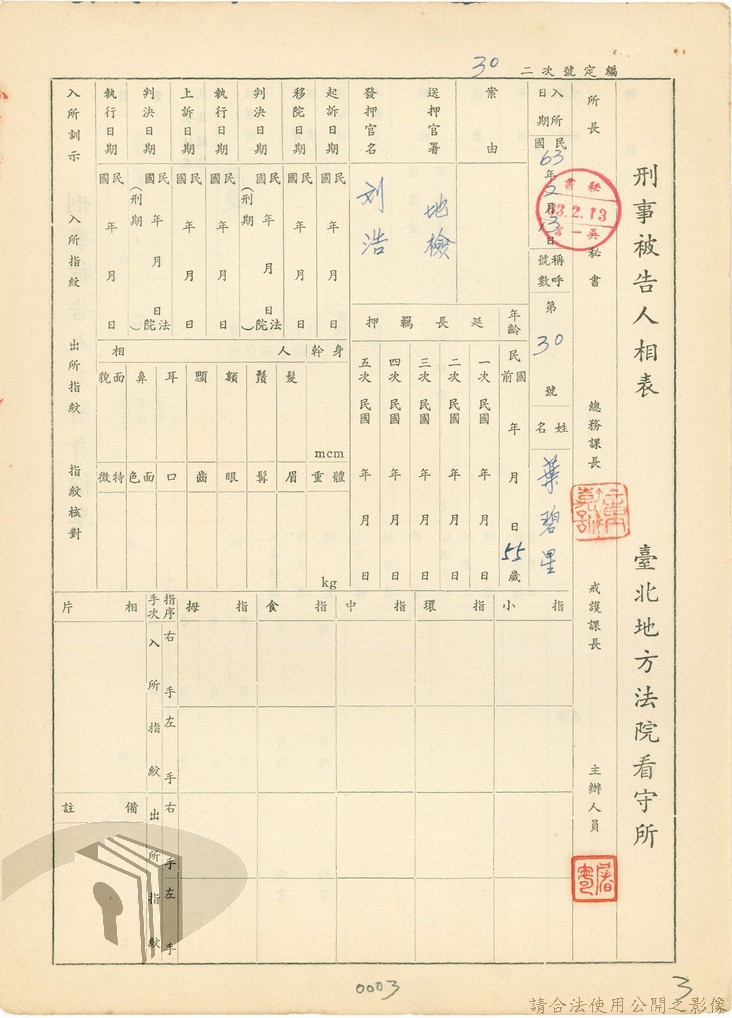 編定號次二 30
刑事被告人相表 臺北地方法院看守所
所長 秘書 總務課長 戒護課長 主辦人員
秘書
63.2.13
吳一
入所日期 民國63年2月13日
稱呼號數 第30號
姓名 葉碧星
年齡 民國前 年 月 日 55歲
案由
送押官署 地檢
發押官名 刘浩
延長羈押
一次 民國 年 月 日
二次 民國 年 月 日
三次 民國 年 月 日
四次 民國 年 月 日
五次 民國 年 月 日
起訴日期 民國 年 月 日
移院日期 民國 年 月 日
判決日期 民國 年 月 日 法院(刑期 )
執行日期 民國 年 月 日
上訴日期 民國 年 月 日
判決日期 民國 年 月 日 法院(刑期 )
執行日期 民國 年 月 日
身幹 mcm
體重 kg
人相
髮 鬚 額 顋 耳 鼻 面貌
眉 髯 眼 齒 口 面色 特徵
入所訓示 入所指紋 出所指紋 指紋核對
小指 環指 中指 食指 拇指 指序 手次 相片
右手 左手 入所指紋
右手 左手 出所指紋
備註
0003
3
請合法使用公開之影像